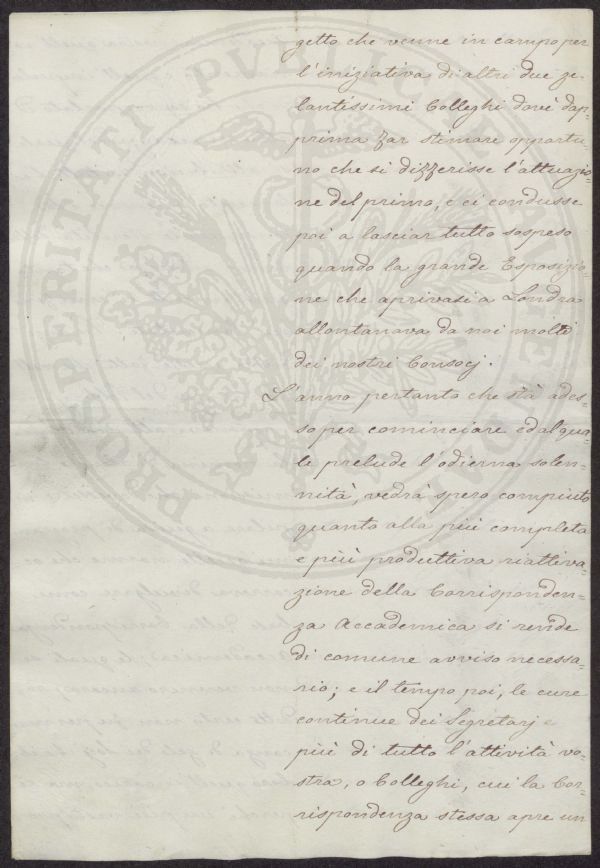 getto che venne in campo per
l'iniziativa di altri due ze=
lantissimi Colleghi dovè dap=
prima far stimare opportu=
no che si differisse l'attuazio=
ne del primo, e ci condusse
poi a lasciar tutto sospeso
quando la grande Esposizio=
ne che aprivasi a Londra
allontanava da noi molti
dei nostri Consocj.
L'anno pertanto che stà ades=
so per cominciare ed al qua=
le prelude l'odierna solen=
nità, vedrà spero compiuto
quanto alla più completa
e più produttiva riattiva=
zione della Corrisponden=
za Accademica si rende
di comune avviso necessa=
rio; e il tempo poi, le cure
continue dei Segretarj e
più di tutto l'attività vo=
stra, o Colleghi, cui la Cor=
rispondenza stessa apre un
PROSPERITATI PVBLICAE